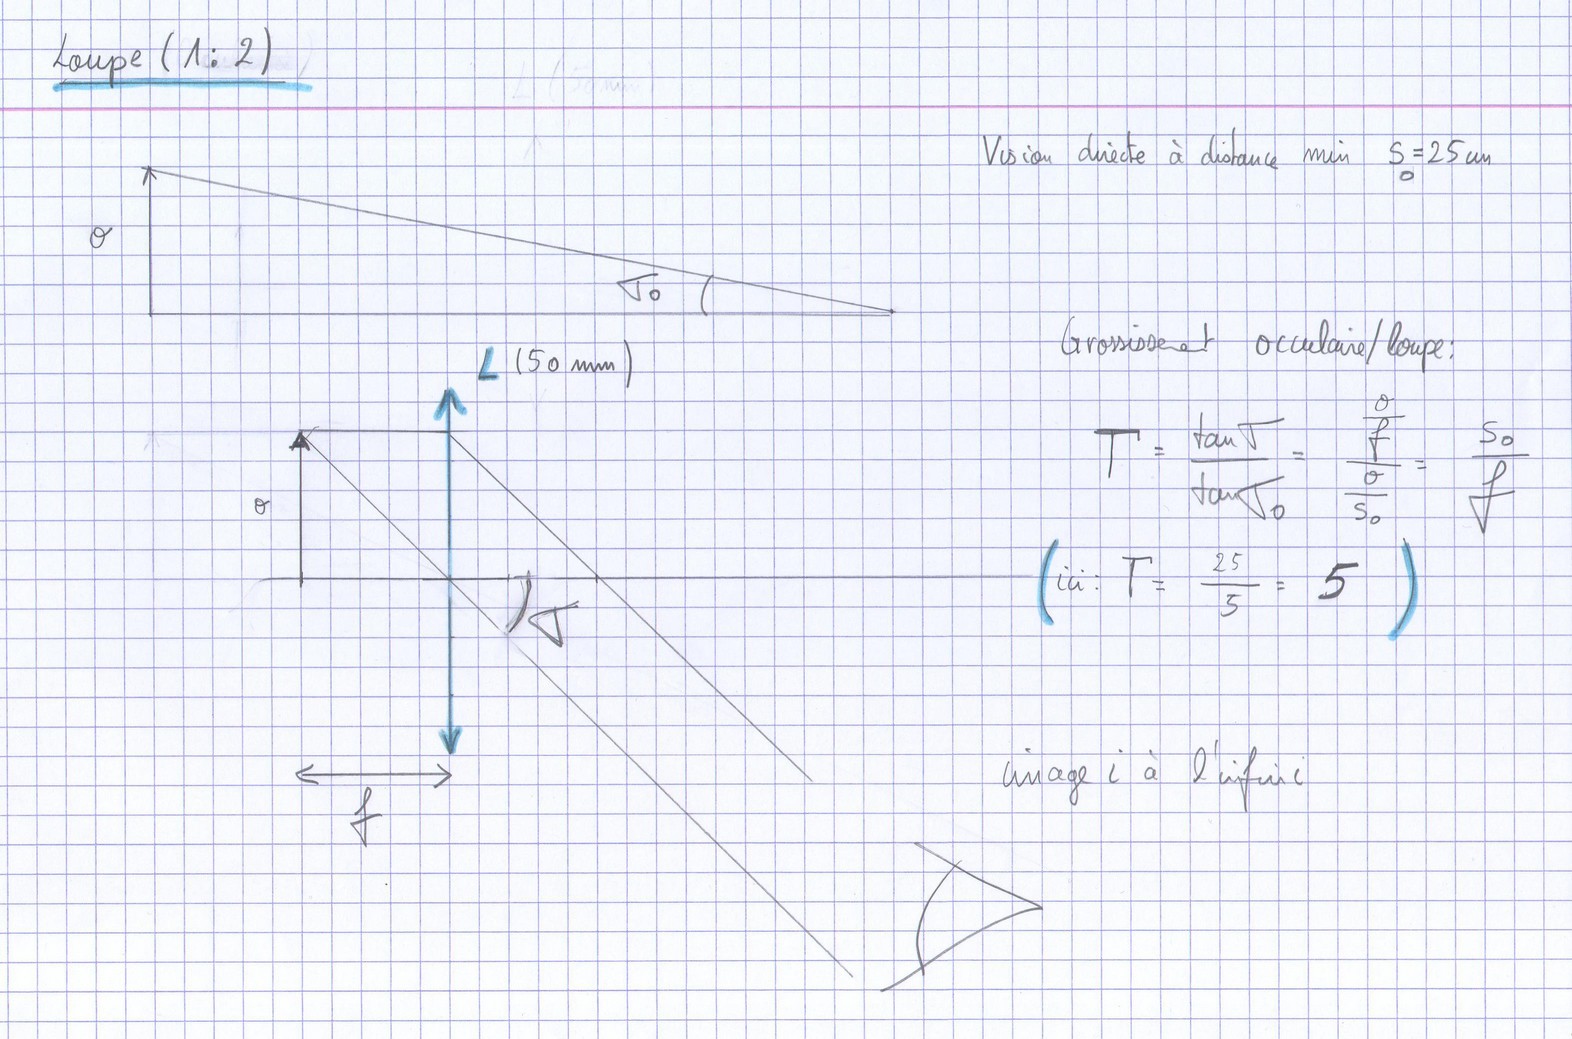 Loupe (1:2)
Vision directe à distance min s₀=25cm
σ
σ₀
L (50 mm)
Grossissement occulaire/loupe:
Γ = tan σ / tan σ₀ = (o/f) / (o/s₀) = s₀/f
o
(ici: Γ = 25/5 = 5)
σ
image i à l'infini
f